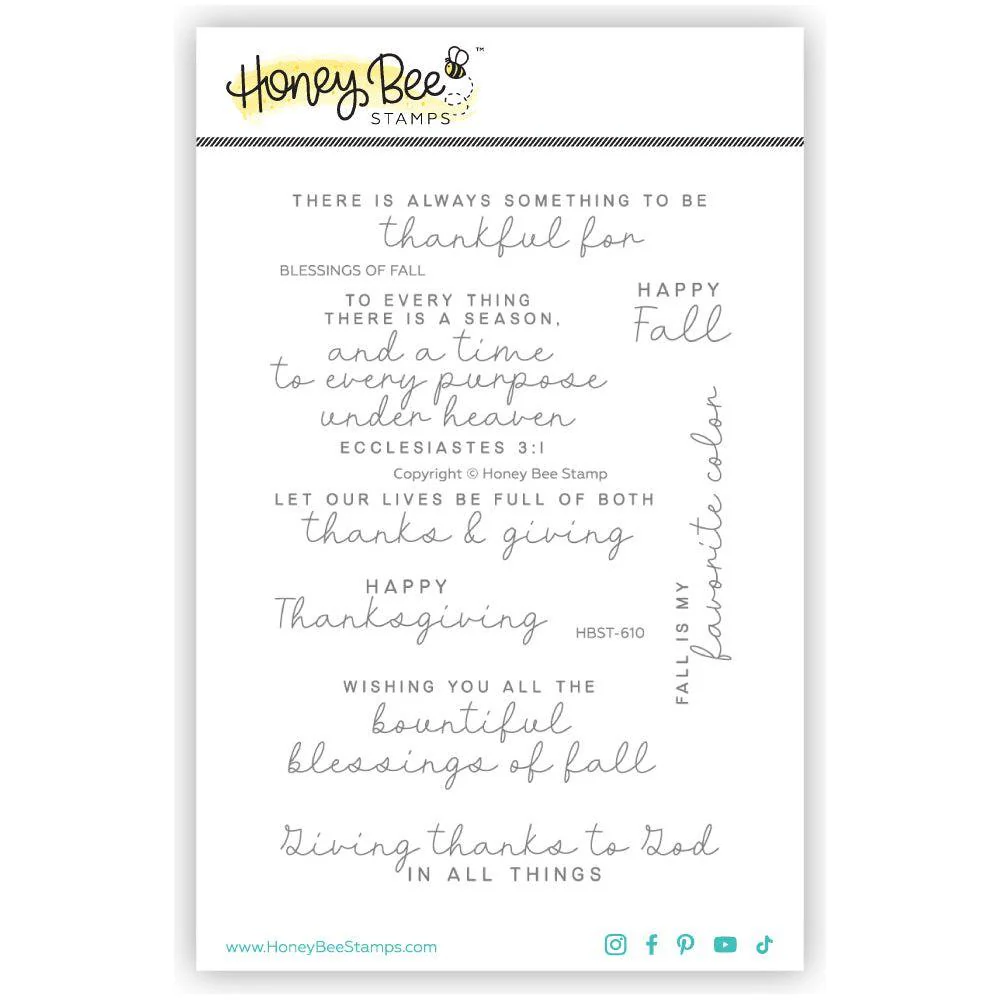 Honey Bee ™
STAMPS
THERE IS ALWAYS SOMETHING TO BE
thankful for
BLESSINGS OF FALL
TO EVERY THING
THERE IS A SEASON,
and a time
to every purpose
under heaven
ECCLESIASTES 3:1
Copyright © Honey Bee Stamp
HAPPY
Fall
LET OUR LIVES BE FULL OF BOTH
thanks & giving
FALL IS MY
favorite color
HAPPY
Thanksgiving
HBST-610
WISHING YOU ALL THE
bountiful
blessings of fall
Giving thanks to God
IN ALL THINGS
www.HoneyBeeStamps.com